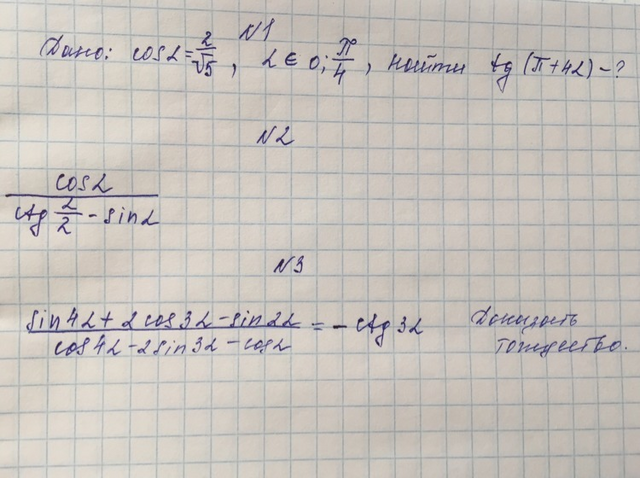 N1
Дано: cosα = 2/√5, α ∈ 0; π/4, найти tg(π+4α) - ?
N2
cosα / (ctg α/2 - sinα)
N3
(sin4α + 2cos3α - sin2α) / (cos4α - 2sin3α - cosα) = - ctg3α Доказать
тождество.